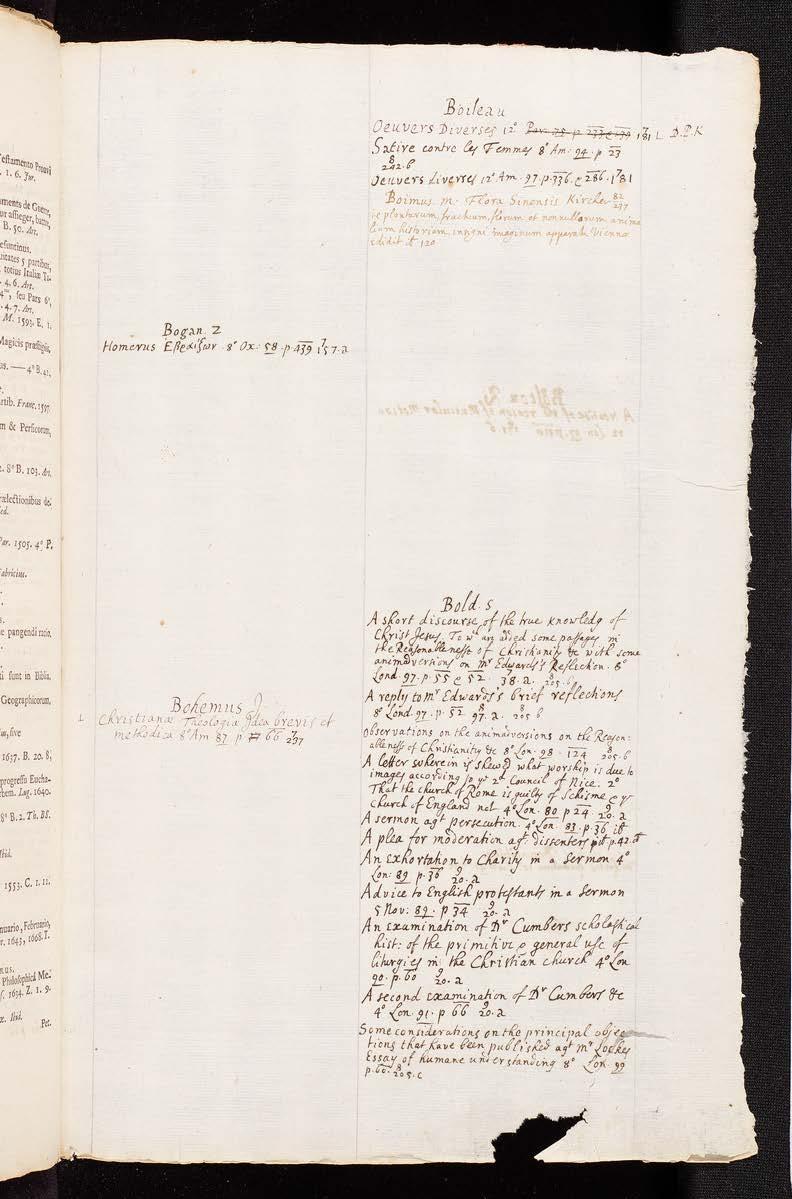 Testamento
1. 6. Jur.
aments de Guerre,
ur assieger, battre,
B. 50. Art.
totius Italiæ
4. 6. Art.
seu Pars 6ª,
4. 7. Art.
M. 1593. E. 1.
Magicis præstigiis,
4° B. 41.
artib. Franc. 1597.
m & Persicorum,
8° B. 103. Art.
rælectionibus de
Par. 1505. 4° P.
Fabricius.
e pangendi ratio.
ti sunt in Biblia.
Geographicorum,
1637. B. 20. 8,
progressu Eucha-
Lug. 1640.
8° B. 2. Th. BS.
Ibid.
1553. C. 1. 11.
nuario, Februario,
1645, 1668. T.
Philosophicâ Me-
1634. Z. 1. 9.
Ibid.
Pet.
Bogan. Z
Homerus Εβραιζων. 8° Ox: 58. p. 439 157. a
L
Bohemus J.
Christianæ Theologiæ Idea brevis et
methodica 8° Am 87 p 66 237
Boileau
Oeuvers Diverses 12° Par. 75 p 181 L D.P.K
Satire contre les Femmes 8° Am: 94. p 23
8
242.b
Oeuvers diverses 12° Am. 97. p. 336. e 286. 181
Boimus. m. Flora Sinensis Kircher 82
237
de plantarum, fructuum, florum et nonnullorum anima
lium historiam, insigni imaginum apparatu Viennæ
edidit it 120
Bold. S
A short discourse of the true knowledg of
Christ Jesus. To wch are added some passages in
the Reasonablenesse of Christianity &c with some
animadversions on Mr Edwards's Reflection. 8°
Lond. 97. p. 55 e 52. 38. a. 205. b
A reply to Mr Edwards's brief reflections
8° Lond. 97. p. 52 97. a. 205 b
Observations on the animadversions on the Reason:
ablenesse of Christianity &c 8° Lon. 98. 124 205. b
A letter wherein is shewd what worship is due to
images according to ye 2d Council of Nice. 2°
That the church of Rome is guilty of Schisme & ye
church of England not 4° Lon. 80 p 24. 20. a
A sermon agt persecution. 4° Lon. 83. p. 36 ib
A plea for moderation agt dissenters p. 42. ib
An exhortation to Charity in a Sermon 4°
Lon: 89 p. 36 20. a
Advice to English protestants in a Sermon
5 Nov: 89. p 34 20. a
An examination of Dr Cumbers scholastical
hist: of the primitive & general use of
liturgies in the Christian church 4° Lon
90. p. 60 20. a
A second examination of Dr Cumbers &c
4° Lon. 91. p 66 20. a
Some considerations on the principal objec
tions that have been published agt Mr Lockes
Essay of humane understanding 8° Lon. 99
p. 60. 205. c